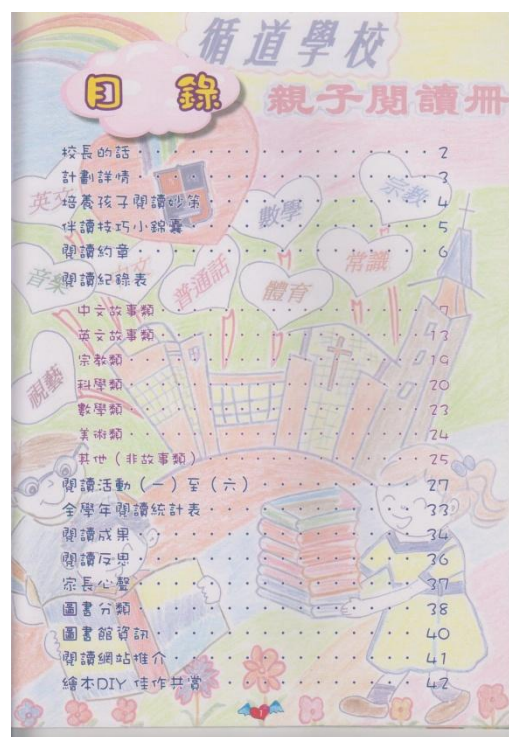 循道學校
目 錄
親子閱讀冊
校長的話 2
計劃詳情 3
培養孩子閱讀妙策 4
伴讀技巧小錦囊 5
閱讀約章 6
閱讀紀錄表
中文故事類 7
英文故事類 13
宗教類 19
科學類 20
數學類 23
美術類 24
其他(非故事類) 25
閱讀活動(一)至(六) 27
全學年閱讀統計表 33
閱讀成果 34
閱讀反思 36
家長心聲 37
圖書分類 38
圖書館資訊 40
閱讀網站推介 41
繪本DIY 佳作共賞 42
英文
數學
宗教
音樂
中文
普通話
體育
常識
視藝
1